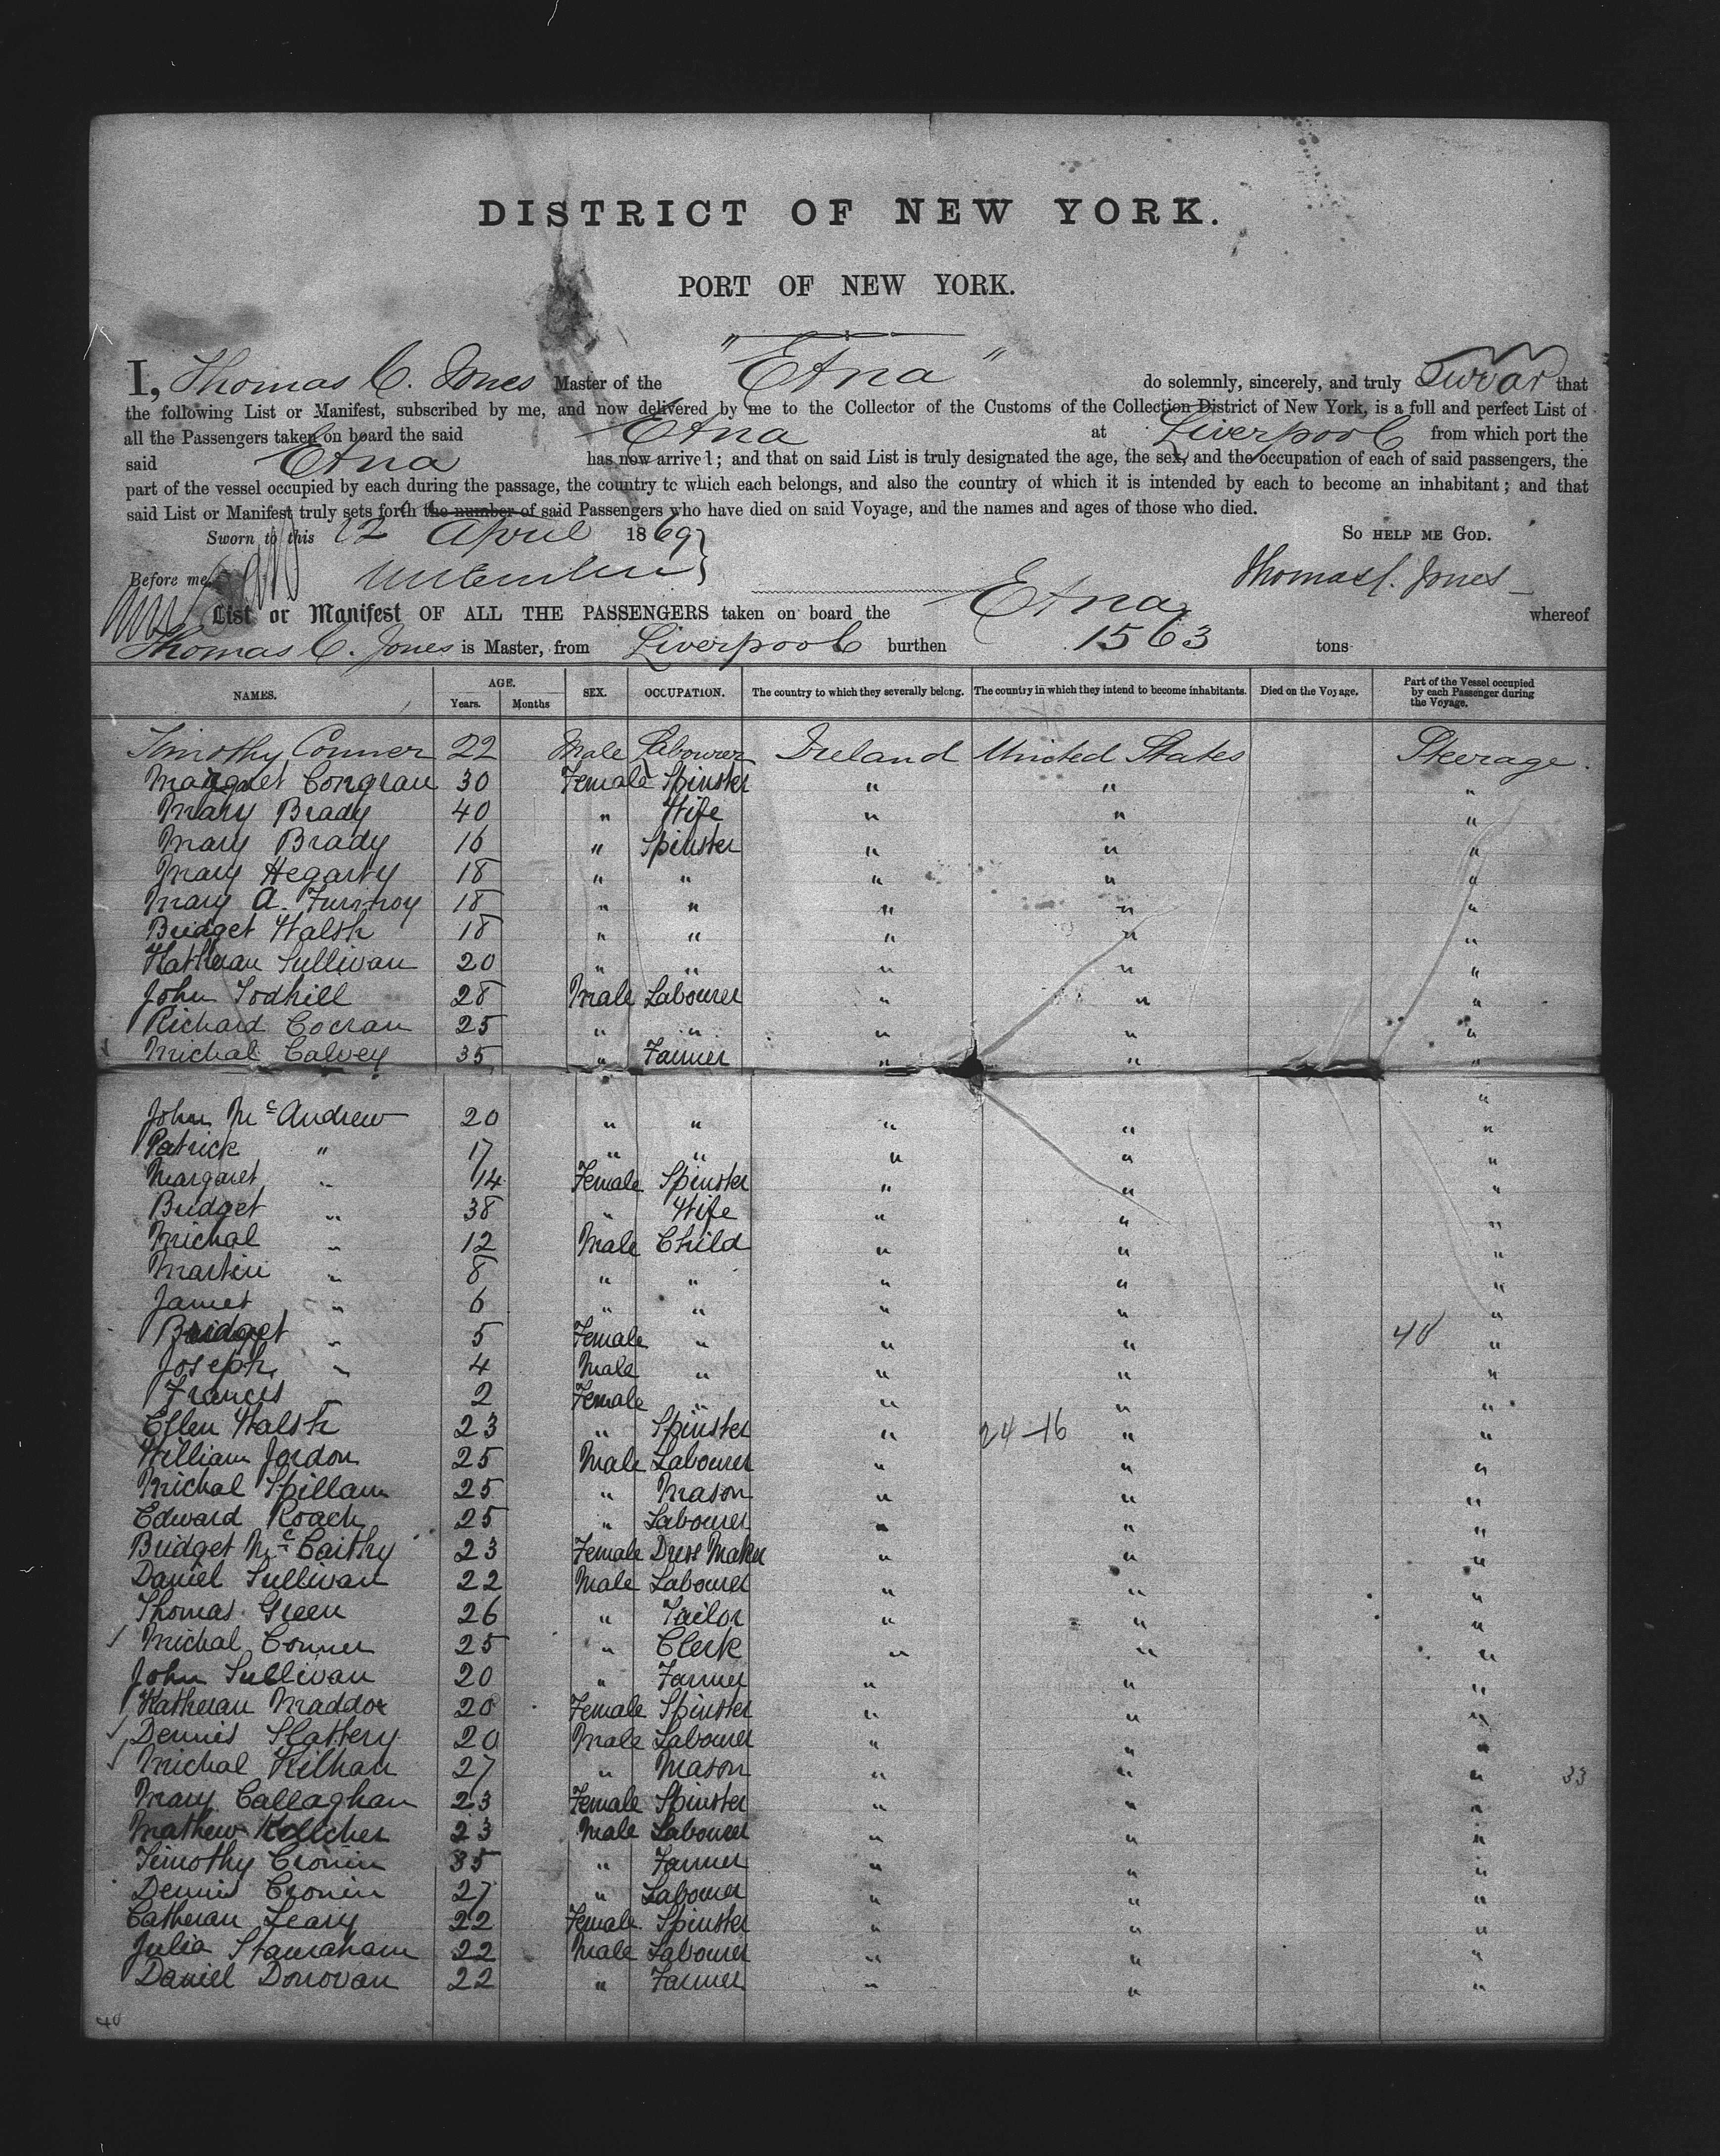 DISTRICT OF NEW YORK.
PORT OF NEW YORK.
I, Thomas C. Jones Master of the "Etna" do solemnly, sincerely, and truly Swear that
the following List or Manifest, subscribed by me, and now delivered by me to the Collector of the Customs of the Collection District of New York, is a full and perfect List of
all the Passengers taken on board the said Etna at Liverpool from which port the
said Etna has now arrived; and that on said List is truly designated the age, the sex, and the occupation of each of said passengers, the
part of the vessel occupied by each during the passage, the country to which each belongs, and also the country of which it is intended by each to become an inhabitant; and that
said List or Manifest truly sets forth the number of said Passengers who have died on said Voyage, and the names and ages of those who died.
Sworn to this 12 April 1869 So HELP ME GOD.
Before me, Thomas C. Jones
List or Manifest OF ALL THE PASSENGERS taken on board the Etna whereof
Thomas C. Jones is Master, from Liverpool burthen 1563 tons
NAMES. AGE. Years. Months SEX. OCCUPATION. The country to which they severally belong. The country in which they intend to become inhabitants. Died on the Voyage. Part of the Vessel occupied by each Passenger during the Voyage.
Timothy Conner 22 Male Labourer Ireland United States Steerage.
Margret Congrau 30 Female Spinster " " "
Mary Brady 40 " Wife " " "
Mary Brady 16 " Spinster " " "
Mary Hegarty 18 " " " " "
Mary A. 18 " " " " "
Bridget Walsh 18 " " " " "
Katheran Sullivan 20 " " " " "
John Todhill 28 Male Labourer " " "
Richard Cocran 25 " " " " "
Michal Calvey 35 " Farmer " " "
John McAndrew 20 " " " " "
Patrick " 17 " " " " "
Margaret " 14 Female Spinster " " "
Bridget " 38 " Wife " " "
Michal " 12 Male Child " " "
Martin " 8 " " " " "
James " 6 " " " " "
Bridget " 5 Female " " " 40 "
Joseph " 4 Male " " " "
Francis " 2 Female " " " "
Ellen Walsh 23 " Spinster " 24-16 " "
William Jordon 25 Male Labourer " " "
Michal Spillam 25 " Mason " " "
Edward Roach 25 " Labourer " " "
Bridget McCarthy 23 Female Dress Maker " " "
Daniel Sullivan 22 Male Labourer " " "
Thomas Green 26 " Tailor " " "
Michal Conner 25 " Clerk " " "
John Sullivan 20 " Farmer " " "
Katheran Maddox 20 Female Spinster " " "
Dennis Slattery 20 Male Labourer " " "
Michal Kilhan 27 " Mason " " " 33
Mary Callaghan 23 Female Spinster " " "
Mathew Kellcher 23 Male Labourer " " "
Timothy Cronin 35 " Farmer " " "
Dennis Cronin 27 " Labourer " " "
Catheran Leary 22 Female Spinster " " "
Julia 22 Male Labourer " " "
Daniel Donovan 22 " Farmer " " "
40